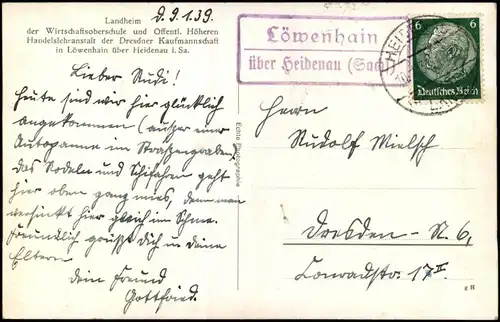 Landheim
der Wirtschaftsoberschule und Öffentl. Höheren
Handelslehranstalt der Dresdner Kaufmannschaft
in Löwenhain über Heidenau i. Sa.
d. 9.1.39.
Lieber Rudi!
Heute sind wir hier glücklich
angekommen (außer einer
Autopanne im Straßengraben)
das Rodeln und Schifahren geht
hier oben ganz mies, denn man
versinkt hier gleich im Schnee.
Freundlich grüßt Dich u. deine
Eltern
dein Freund
Gottfried.
Echte Photographie
Löwenhain
über Heidenau (Sachs)
6 6
Deutsches Reich
HEIDENAU
Herrn
Rudolf Mielsch
Dresden-N. 6,
Conradstr. 17 II